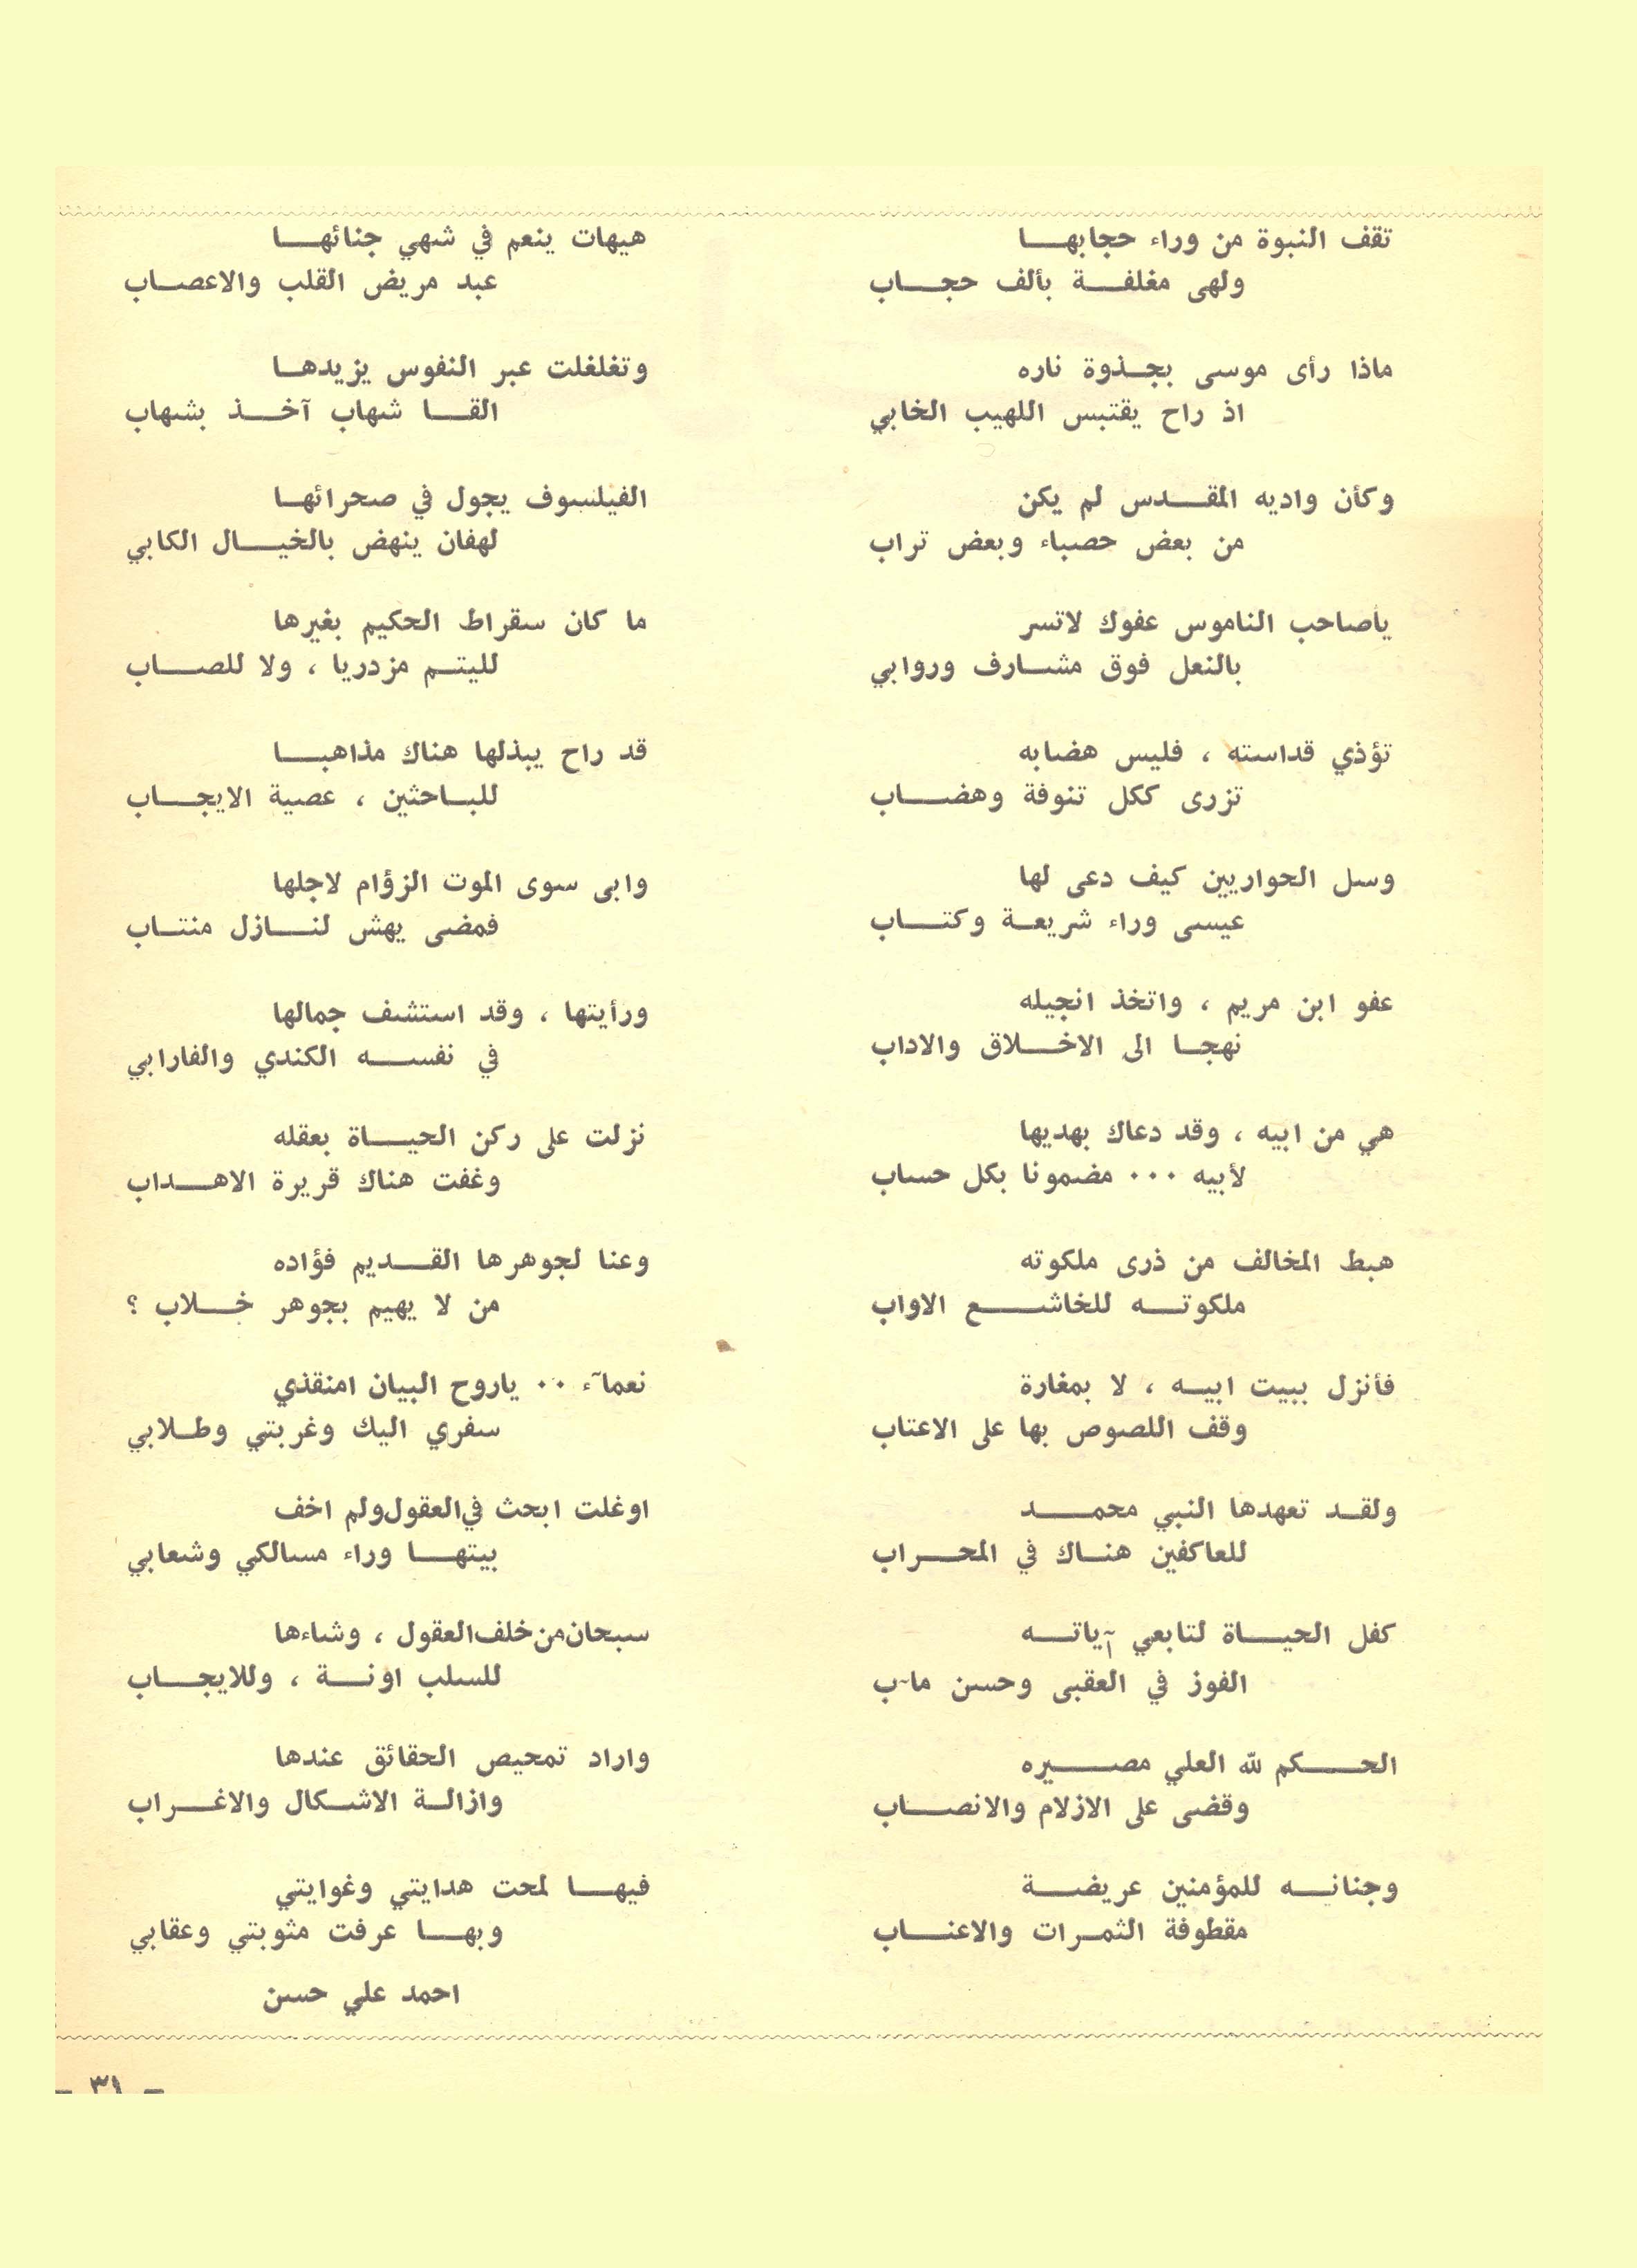 تقف النبوة من وراء حجابها
ولهى مغلفة بألف حجاب
ماذا رأى موسى بجذوة ناره
اذ راح يقتبس اللهيب الخابي
وكأن واديه المقدس لم يكن
من بعض حصباء وبعض تراب
ياصاحب الناموس عفوك لاتسر
بالنعل فوق مشارف وروابي
تؤذي قداسته ، فليس هضابه
تزرى ككل تنوفة وهضاب
وسل الحواريين كيف دعى لها
عيسى وراء شريعة وكتاب
عفو ابن مريم ، واتخذ انجيله
نهجا الى الاخلاق والاداب
هي من ابيه ، وقد دعاك بهديها
لأبيه ٠٠٠ مضمونا بكل حساب
هبط المخالف من ذرى ملكوته
ملكوته للخاشع الاواب
فأنزل ببيت ابيه ، لا بمغارة
وقف اللصوص بها على الاعتاب
ولقد تعهدها النبي محمد
للعاكفين هناك في المحراب
كفل الحياة لتابعي آياته
الفوز في العقبى وحسن مآب
الحكم لله العلي مصيره
وقضى على الازلام والانصاب
وجنانه للمؤمنين عريضة
مقطوفة الثمرات والاعناب
هيهات ينعم في شهي جنائها
عبد مريض القلب والاعصاب
وتغلغلت عبر النفوس يزيدها
القا شهاب آخذ بشهاب
الفيلسوف يجول في صحرائها
لهفان ينهض بالخيال الكابي
ما كان سقراط الحكيم بغيرها
لليتم مزدريا ، ولا للصاب
قد راح يبذلها هناك مذاهبا
للباحثين ، عصية الايجاب
وابى سوى الموت الزؤام لاجلها
فمضى يهش لنازل منتاب
ورأيتها ، وقد استشف جمالها
في نفسه الكندي والفارابي
نزلت على ركن الحياة بعقله
وغفت هناك قريرة الاهداب
وعنا لجوهرها القديم فؤاده
من لا يهيم بجوهر خلاب ؟
نعمآء ٠٠ ياروح البيان امنقذي
سفري اليك وغربتي وطلابي
اوغلت ابحث في العقول ولم اخف
بيتها وراء مسالكي وشعابي
سبحان من خلف العقول ، وشاءها
للسلب اونة ، وللايجاب
واراد تمحيص الحقائق عندها
وازالة الاشكال والاغراب
فيها لمحت هدايتي وغوايتي
وبها عرفت مثوبتي وعقابي
احمد علي حسن
– ٣١ –